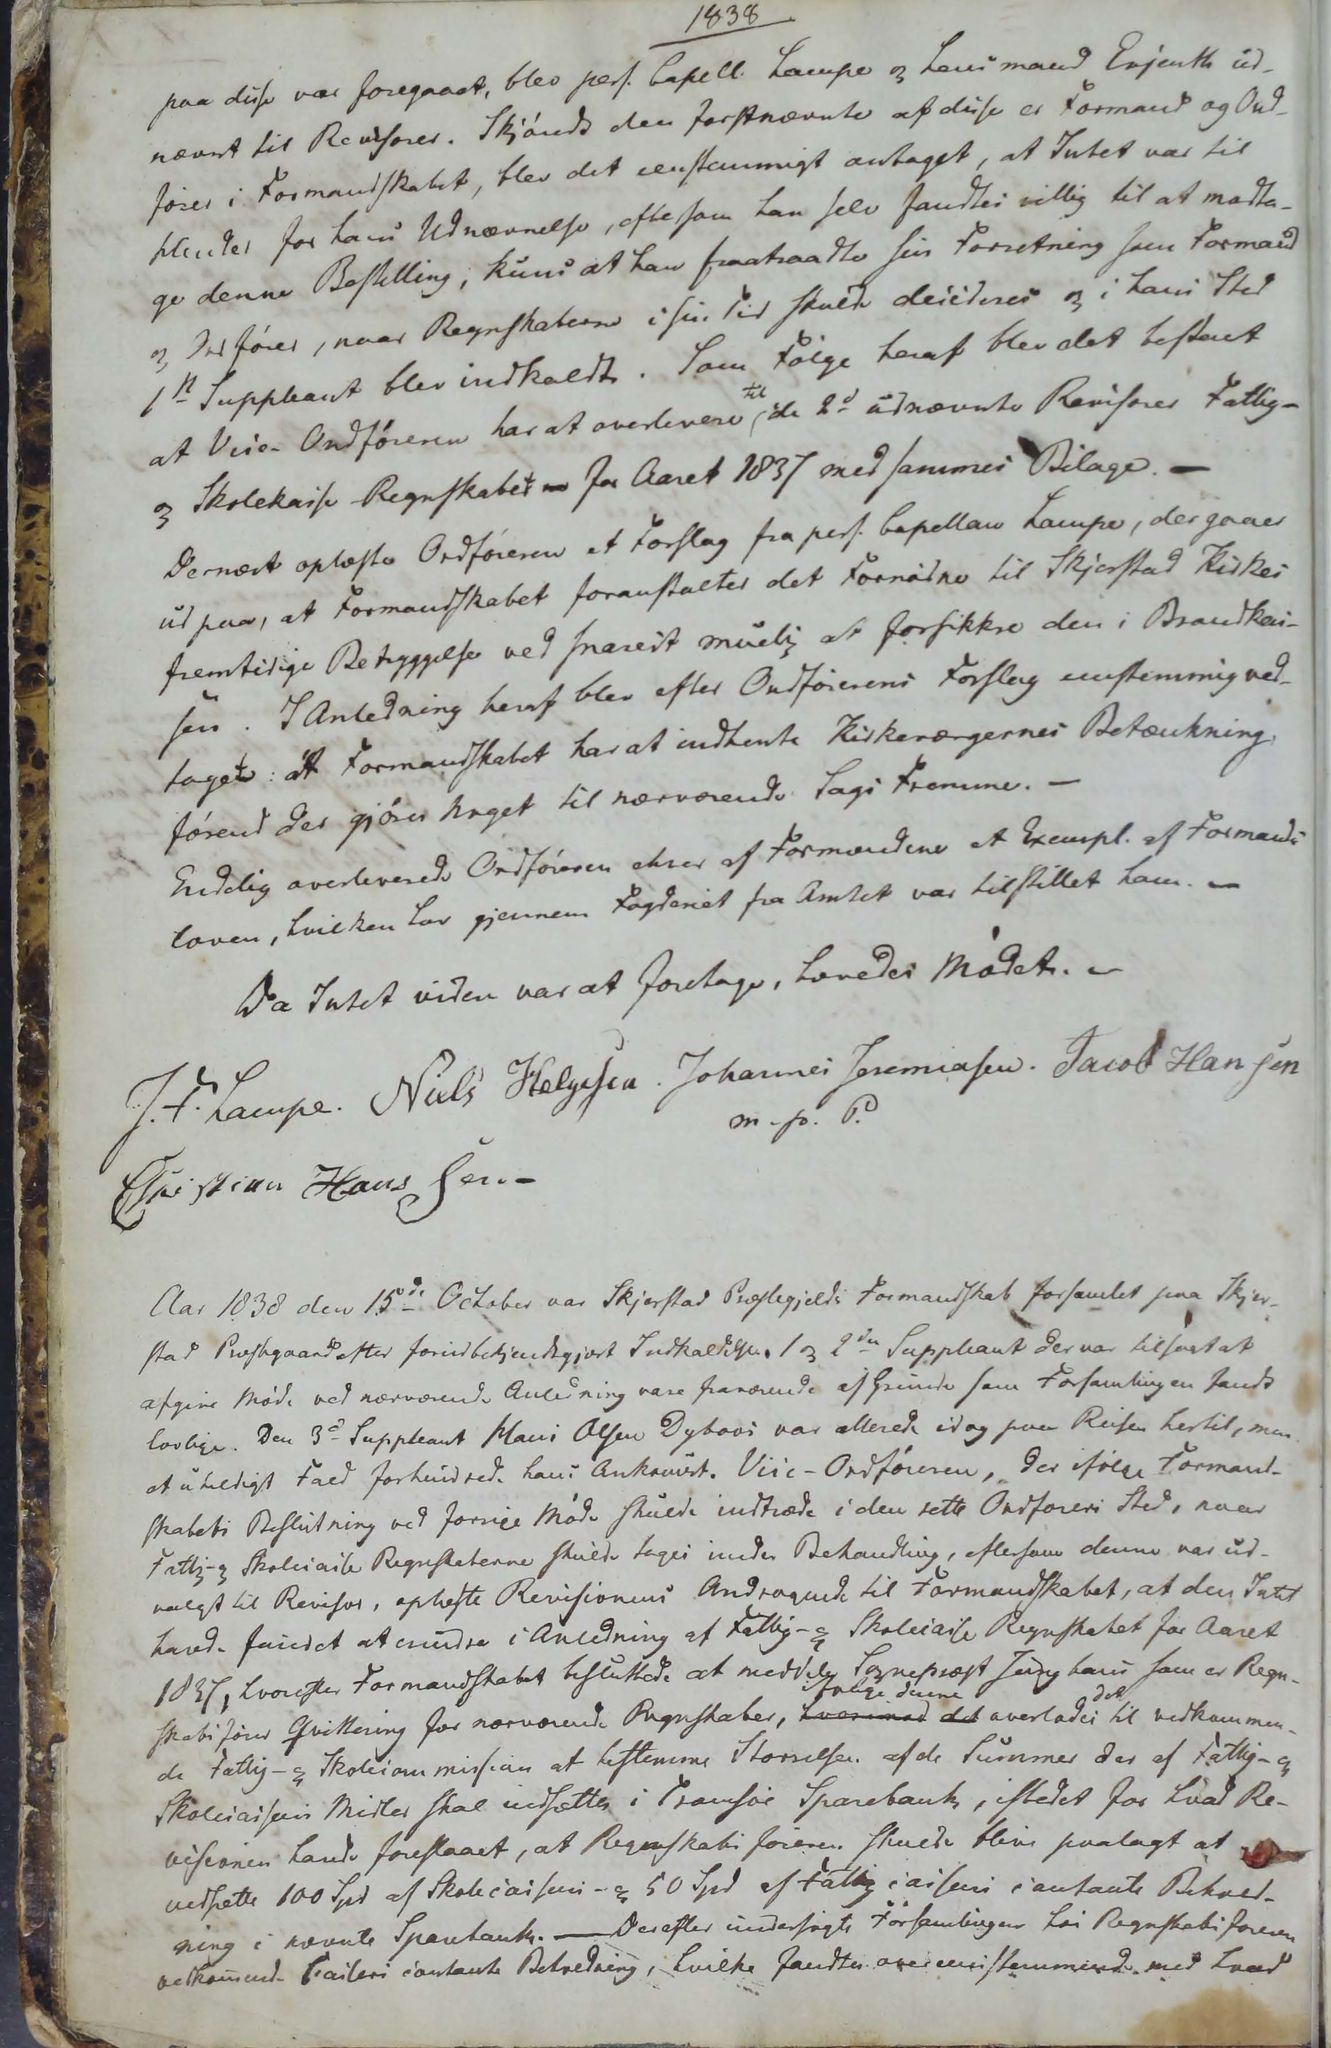 1838
paa disse var foregaaet, blev pers. Capell. Lampe og Lensmand Evjenth ud-
nævnt til Revisorer. Skjøndt den førstnævnte af disse er Formand og Ord-
fører i Formandskabet, blev det eenstemmigt antaget, at Intet var til
Hinder for hans Udnævnelse, eftersom han selv fandtes villig til at modta-
ge denne Bestilling, kuns at han fratraadte sin Forretning som Formand
og Ordfører, naar Regnskaberne i sin Tid skulde decideres og i hans Sted
1ste Suppleant blev indkaldt. Som Følge heraf blev det bestemt
at Vice-Ordføreren har at overlevere til de 2de udnævnte Revisorer Fattig-
og Skolekasse-Regnskabet for Aaret 1837 med sammes Bilage. —
Dernæst oplæste Ordføreren et Forslag fra pers. Capellan Lampe, der gaaer
ud paa, at Formandskabet foranstalter det Fornødne til Skjerstad Kirkes
fremtidige Betryggelse ved snarest muelig at forsikkre den i Brandkas-
sen. I Anledning heraf blev efter Ordførerens Forslag eenstemmig ved-
taget: at Formandskabet har at indhente Kirkeværgernes Betænkning,
førend der gjøres Noget til nærværende Sags Fremme. —
Endelig overleverede Ordføreren enhver af Formændene et Exempl. af Formands-
loven, hvilken Lov gjennem Fogderiet fra Amtet var tilstillet ham. —
Da Intet viden var at foretage, hævedes Mødet. —
J. F. Lampe. Niels Helgesen. Johannes Jeremiasen. Jacob Hansen
m. p. P.
Christian Hans Sen. —
Aar 1838 den 15de October var Skjerstad Præstegjelds Formandskab forsamlet paa Skjer-
stad Præstegaard efter forudbekjendtgjort Indkaldelse. 1 og 2den Suppleant der var tilsagt at
afgive Møde ved nærværende Anledning vare fraværende af Grunde som Forsamlingen fandt
lovlige. Den 3die Suppleant Hans Olsen Dybvos var allerede idag paa Reisen hertil, men
et uheldigt Fald forhindrede hans Ankomst. Vice-Ordføreren, der ifølge Formand-
skabets Beslutning ved forrige Møde skulde indtræde i den rette Ordførers Sted, naar
Fattig- og Skolecasse Regnskaberne skulde tages under Behandling, eftersom denne var ud-
valgt til Revisor, oplæste Revisionens Andragende til Formandskabet, at den Intet
havde fundet at erindre i Anledning af Fattig- og Skolecasse Regnskabet for Aaret
1837, hvorefter Formandskabet besluttede at meddele Sognepræst Junghans som er Regn-
skabsfører Qvittering for nærværende Regnskaber, ifølge denne overlades det til vedkommen-
de Fattig- og Skolecommission at bestemme Størrelsen af de Summer der af Fattig- og
Skolecassens Midler skal indsættes i Tromsøe Sparebank, istedet for hvad Re-
visionen havde foreslaaet, at Regnskabsføreren skulde blive paalagt at
nedsætte 100 Spd af Skolecassens- og 50 Spd af Fattigcassens contante Behold-
ning i nævnte Sparebank. — Derefter undersøgte Forsamlingen hos Regnskabsføreren
vedkommende Cassers contante Beholdning, hvilke fandtes overeensstemmende med hvad